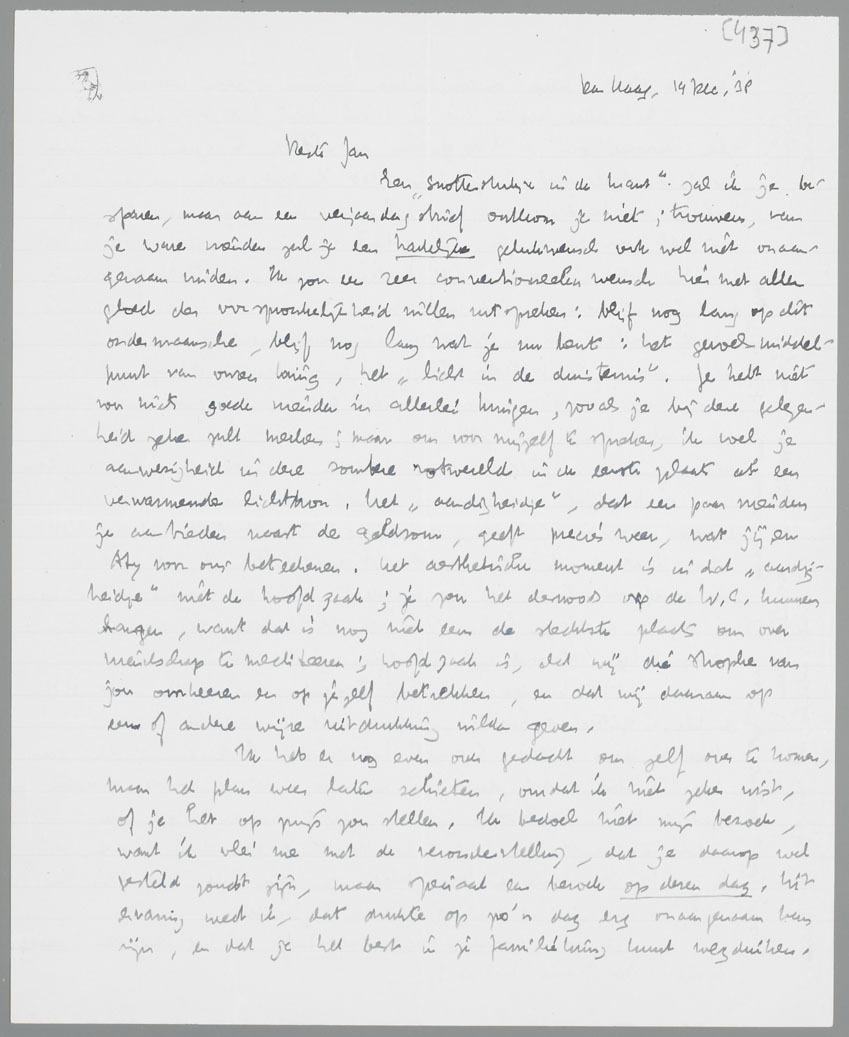 [437]
Den Haag, 14 Dec. '38
Beste Jan
Een „ in de krant" zal ik je be-
sparen, maar aan een verjaardagsbrief ontkom je niet; trouwens, van
je ware vrienden zal je een hartelijke gelukwensch ook wel niet onaan-
genaam vinden. Ik zou een zeer conventioneelen wensch hier met allen
gloed der oorspronkelijkheid willen uitspreken: blijf nog lang op dit
ondermaansche, blijf nog lang wat je nu bent: het gevoelsmiddel-
punt van onzen kring, het „licht in de duisternis". Je hebt niet
voor niets goede vrienden in allerlei kringen, zooals je bij deze gelegen-
heid zeker zult merken; maar om voor mijzelf te spreken, ik voel je
aanwezigheid in deze sombere rotwereld in de eerste plaats als een
verwarmende lichtbron. Het „aardigheidje", dat een paar vrienden
je aanbieden naast de geldsom, geeft precies weer, wat jij en
Aty voor ons beteekenen. Het aesthetische moment is in dat „aardig-
heidje" niet de hoofdzaak; je zou het desnoods op de W.C. kunnen
hangen, want dat is nog niet eens de slechtste plaats om over
vriendschap te mediteeren; hoofdzaak is, dat wij die strophe van
jou overheeren en op jezelf betrekken, en dat wij daaraan op
een of andere wijze uitdrukking wilden geven.
Ik heb er nog even over gedacht om zelf over te komen,
maar het plan weer laten schieten, omdat ik niet zeker wist,
of je het op prijs zou stellen. Ik bedoel niet mijn bezoek,
want ik vlei me met de veronderstelling, dat je daarop wel
gesteld zoudt zijn, maar speciaal een bezoek op dezen dag. Uit
ervaring weet ik, dat drukte op zoo'n dag erg onaangenaam kan
zijn, en dat je het best in je familiekring kunt wegduiken.